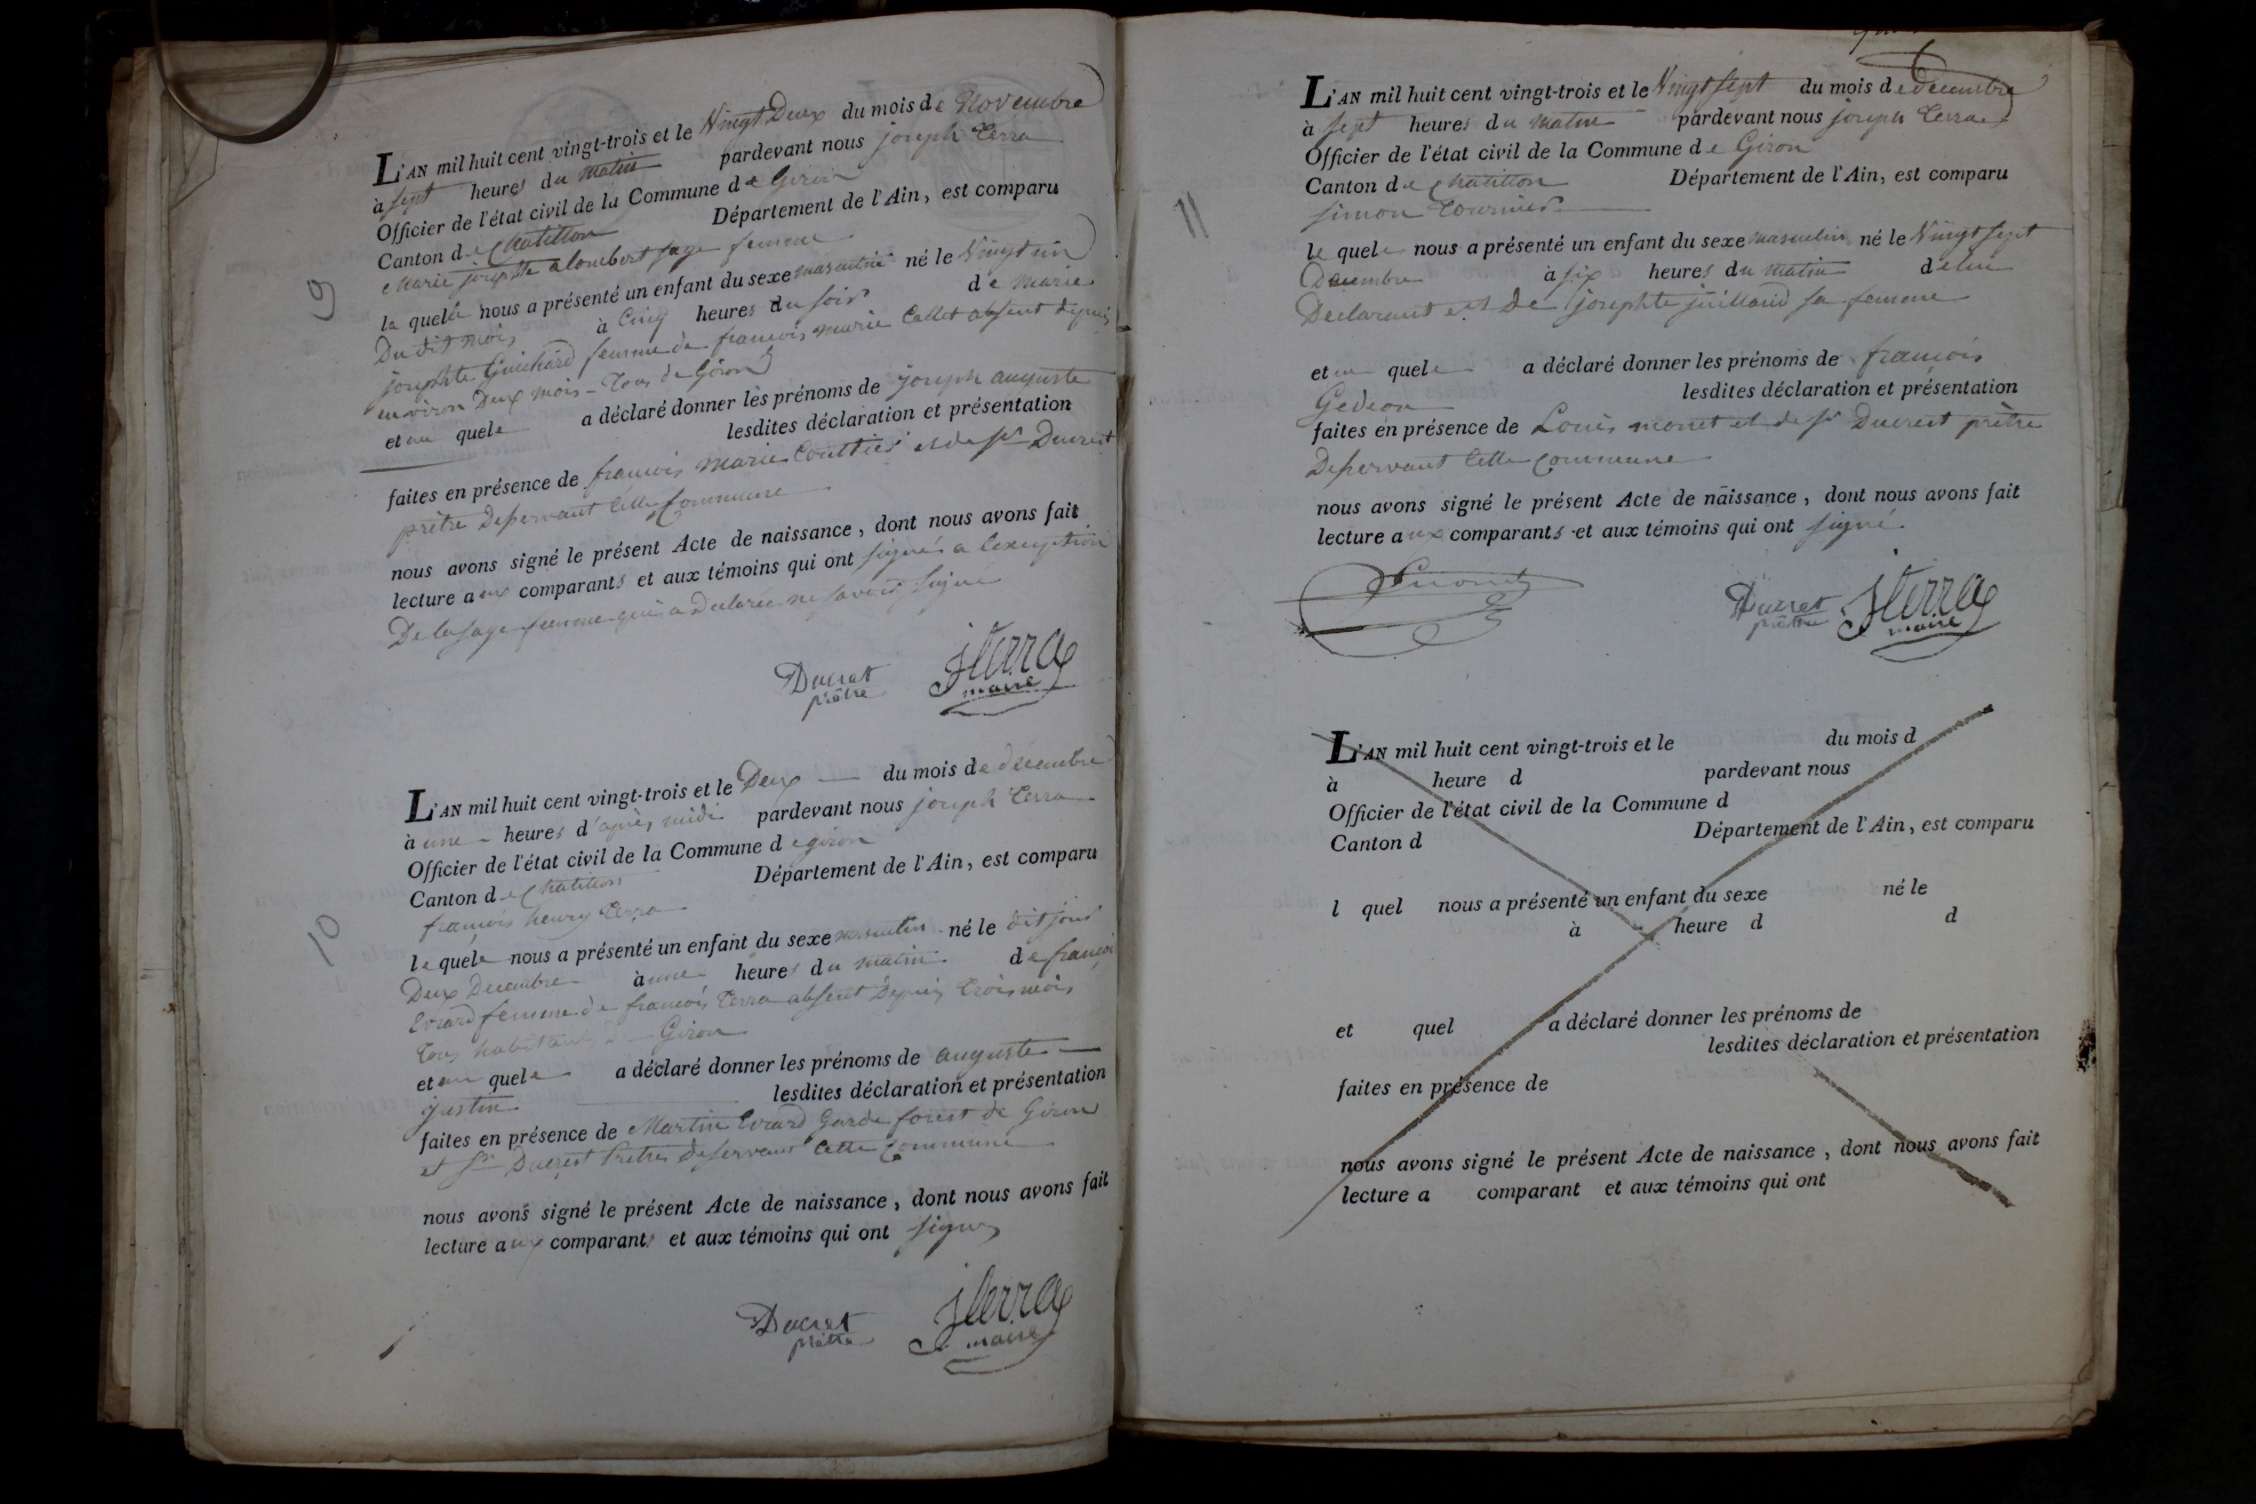 9
L'AN mil huit cent vingt-trois et le Vingt Deux du mois de Novembre
à sept heures du matin pardevant nous joseph Terra
Officier de l'état civil de la Commune de Giron
Canton de Chatillon Département de l'Ain, est comparu
Marie josephte alombert sage femme
la quele nous a présenté un enfant du sexe masculin né le Vingt un
Du dit mois à Cinq heures du soir de Marie
josephte Guichard femme de françois marie Callet absent depuis
environ Deux mois - Tous de Giron
et au quele a déclaré donner les prénoms de joseph auguste
lesdites déclaration et présentation
faites en présence de françois marie et de sr Ducret
prêtre Deservant Cette Commune
nous avons signé le présent Acte de naissance, dont nous avons fait
lecture aux comparants et aux témoins qui ont signés a l'exception
De la sage femme qui a Declarée ne savoir signé
Ducret
prêtre
JTerra
maire
10
L'AN mil huit cent vingt-trois et le Deux du mois de décembre
à une heures d'après midi pardevant nous joseph Terra
Officier de l'état civil de la Commune de giron
Canton de Chatillon Département de l'Ain, est comparu
françois henry Terra
le quele nous a présenté un enfant du sexe masculin né le dit jour
Deux Decembre à une heures du matin de françoi
Evrard femme de françois Terra absent Depuis Trois mois
Tous habitant à Giron
et au quele a déclaré donner les prénoms de auguste
justin lesdites déclaration et présentation
faites en présence de Martin Evrard Garde forest de Giron
et sr Ducrest Prêtre Deservant Cette Commune
nous avons signé le présent Acte de naissance, dont nous avons fait
lecture aux comparants et aux témoins qui ont signes
Ducret
prêtre
JTerra
maire
11
L'AN mil huit cent vingt-trois et le Vingt sept du mois de decembre
à sept heures du matin pardevant nous joseph Terra
Officier de l'état civil de la Commune de Giron
Canton de Chatillon Département de l'Ain, est comparu
simon Tournier
le quele nous a présenté un enfant du sexe masculin né le Vingt sept
Decembre à six heures du matin de lui
Declarant et de josephte juilland sa femme
et au quele a déclaré donner les prénoms de françois
Gedeon lesdites déclaration et présentation
faites en présence de Louis monet et de sr Ducrest prêtre
Deservant Cette Commune
nous avons signé le présent Acte de naissance, dont nous avons fait
lecture aux comparants et aux témoins qui ont signé
Ducret
prêtre
JTerra
maire
L'AN mil huit cent vingt-trois et le du mois d
à heure d pardevant nous
Officier de l'état civil de la Commune d
Canton d Département de l'Ain, est comparu
l quel nous a présenté un enfant du sexe né le
à heure d d
et quel a déclaré donner les prénoms de
lesdites déclaration et présentation
faites en présence de
nous avons signé le présent Acte de naissance, dont nous avons fait
lecture a comparant et aux témoins qui ont